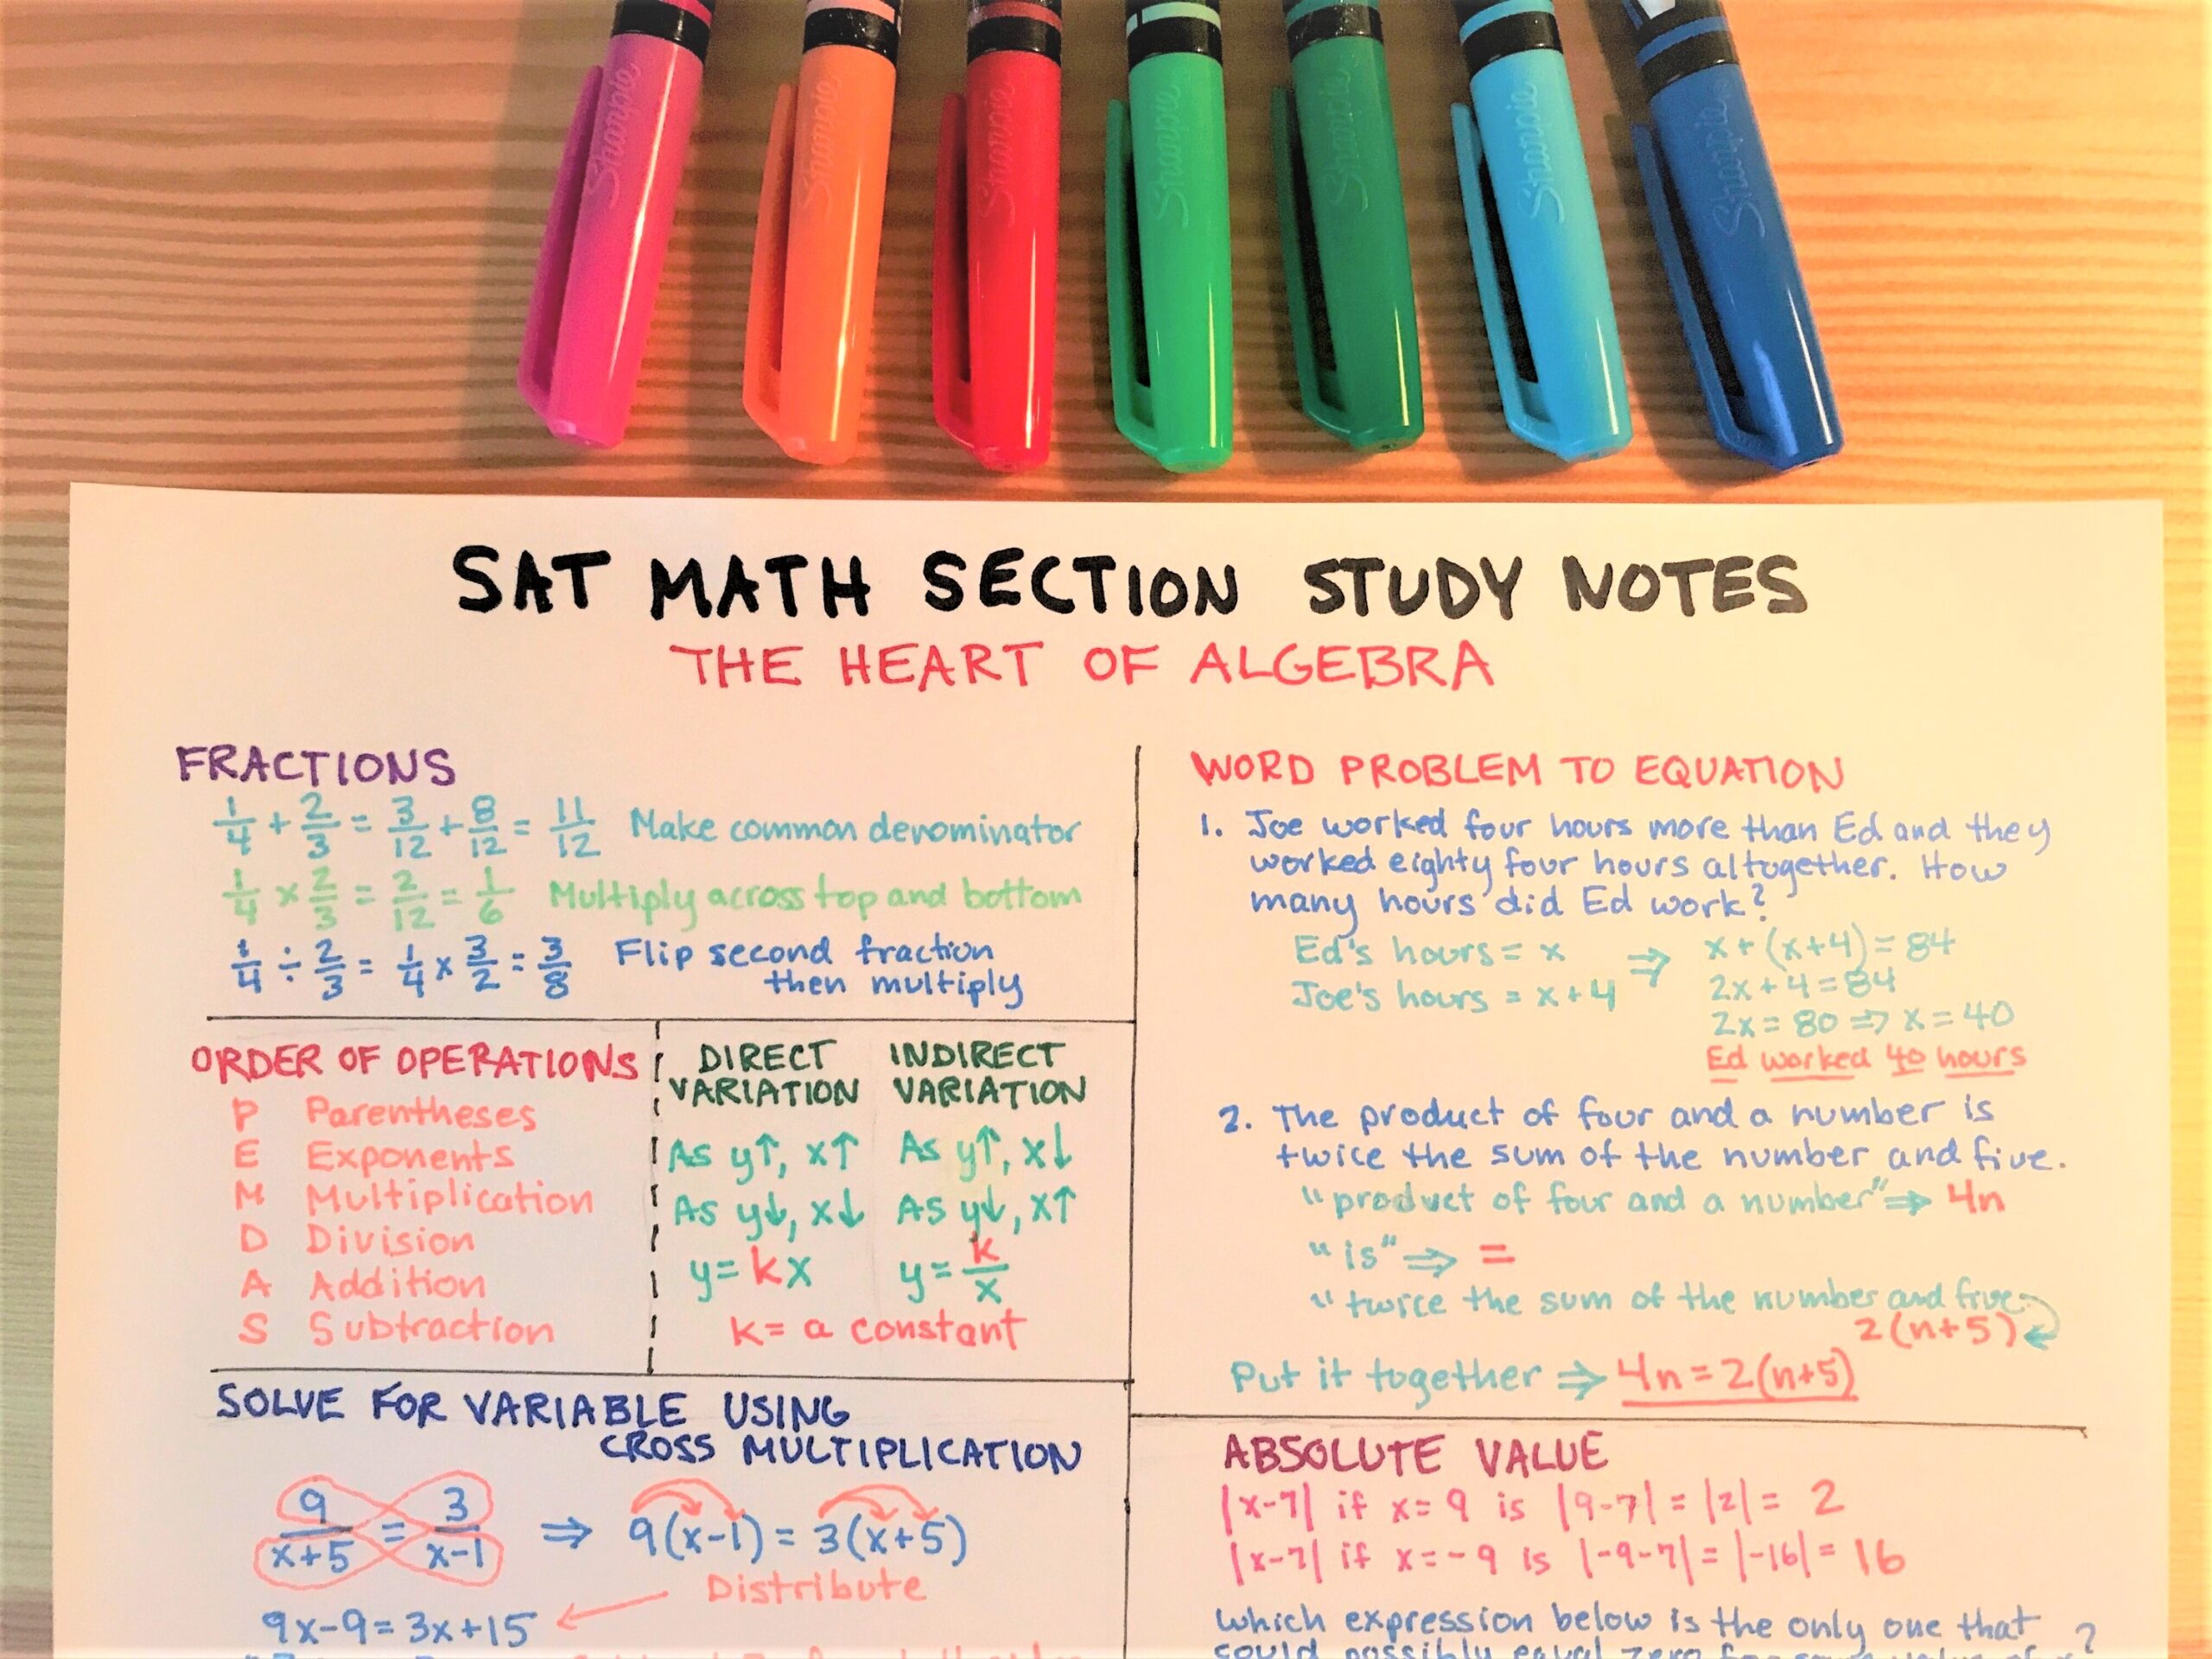 Sharpie Sharpie Sharpie Sharpie Sharpie Sharpie Sharpie
SAT MATH SECTION STUDY NOTES
THE HEART OF ALGEBRA
FRACTIONS
1/4 + 2/3 = 3/12 + 8/12 = 11/12 Make common denominator
1/4 × 2/3 = 2/12 = 1/6 Multiply across top and bottom
1/4 ÷ 2/3 = 1/4 × 3/2 = 3/8 Flip second fraction
then multiply
ORDER OF OPERATIONS
P Parentheses
E Exponents
M Multiplication
D Division
A Addition
S Subtraction
DIRECT VARIATION
As y↑, x↑
As y↓, x↓
y = kx
INDIRECT VARIATION
As y↑, x↓
As y↓, x↑
y = k/x
k = a constant
SOLVE FOR VARIABLE USING
CROSS MULTIPLICATION
9/(x+5) = 3/(x-1) ⇒ 9(x-1) = 3(x+5)
Distribute
9x-9 = 3x+15
WORD PROBLEM TO EQUATION
1. Joe worked four hours more than Ed and they
worked eighty four hours altogether. How
many hours did Ed work?
Ed's hours = x ⇒ x + (x+4) = 84
Joe's hours = x+4 2x+4 = 84
2x = 80 ⇒ x = 40
Ed worked 40 hours
2. The product of four and a number is
twice the sum of the number and five.
"product of four and a number" ⇒ 4n
"is" ⇒ =
"twice the sum of the number and five
2(n+5)
Put it together ⇒ 4n = 2(n+5)
ABSOLUTE VALUE
|x-7| if x = 9 is |9-7| = |2| = 2
|x-7| if x = -9 is |-9-7| = |-16| = 16
which expression below is the only one that
could possibly equal zero for some value of x?